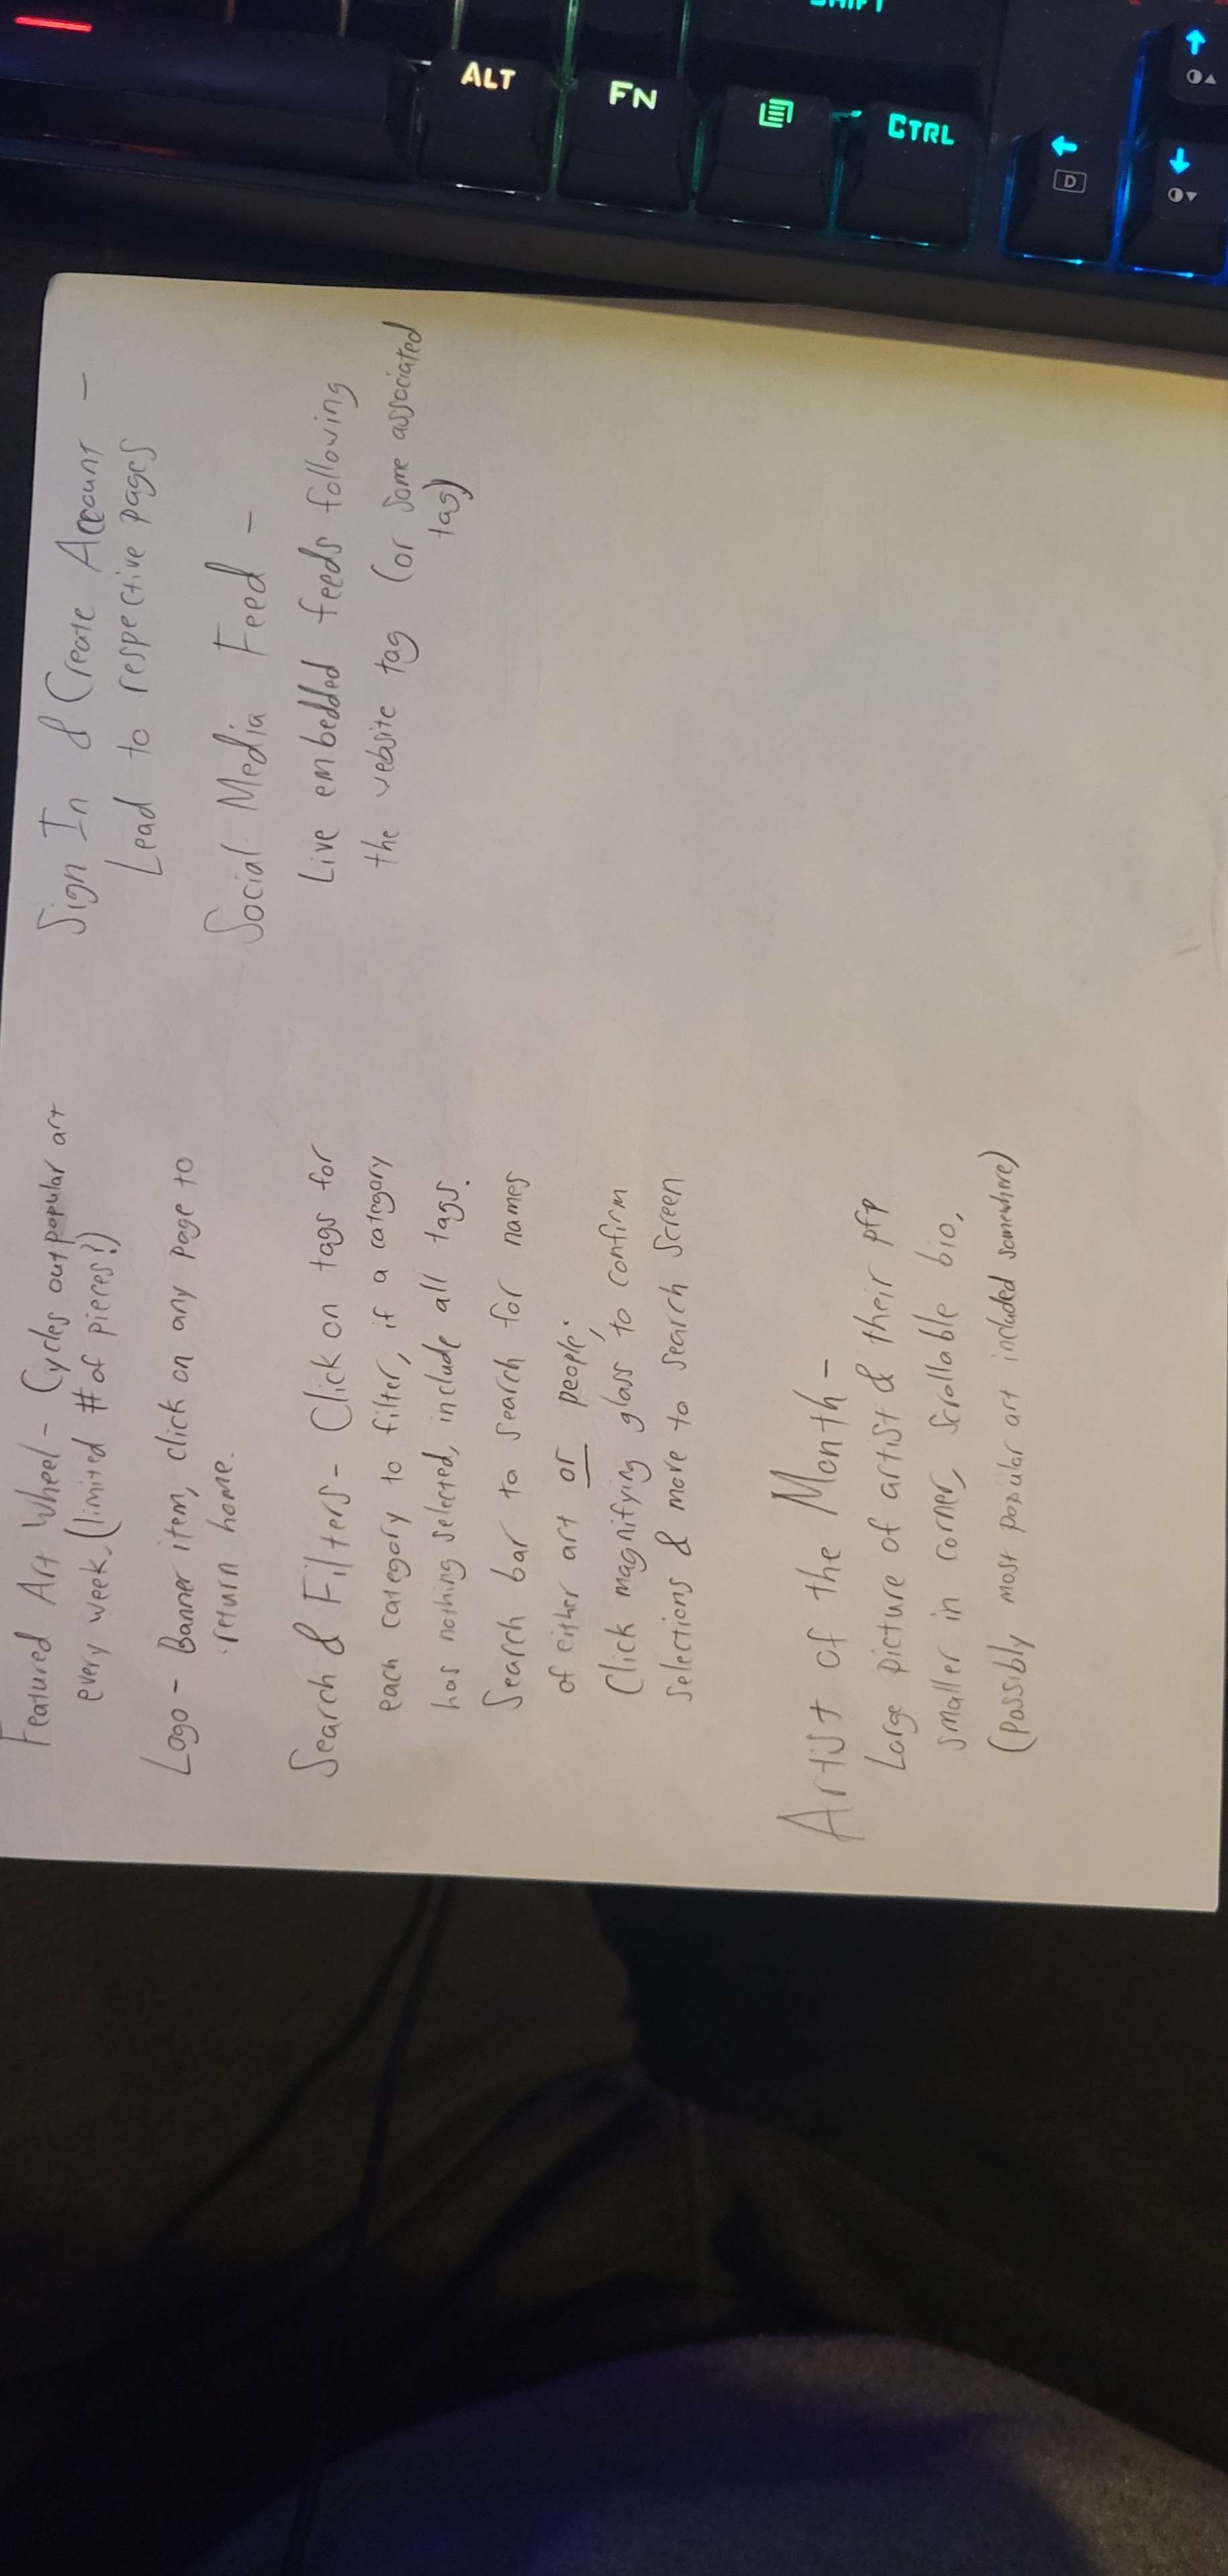 Featured Art Wheel - Cycles out popular art
every week. (limited # of pieces?)
Logo - Banner item, click on any page to
return home.
Search & Filters - Click on tags for
each category to filter, if a category
has nothing selected, include all tags.
Search bar to search for names
of either art or people;
Click magnifying glass to confirm
selections & move to search screen
Artist of the Month -
Large picture of artist & their pfp
smaller in corner, Scrollable bio,
(Possibly most popular art included somewhere)
Sign In & Create Account -
Lead to respective pages
Social Media Feed -
Live embedded feeds following
the website tag (or some associated
tag)
SHIFT
ALT
FN
CTRL
D